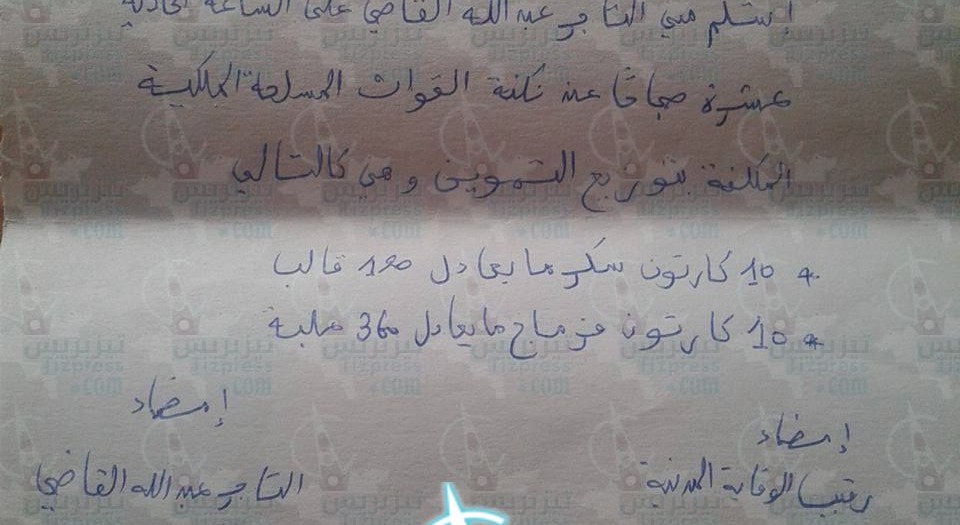 إستلم مني التاجر عبد الله القاضي على الساعة الحادية
عشرة صباحًا عند ثكنة القوات المسلحة الملكية
المكلفة بتوزيع التموين وهي كالتالي
* 10 كارتون سكر ما يعادل 120 قالب
* 10 كارتون فرماج ما يعادل 360 علبة
إمضاء
إمضاء
رقيب الوقاية المدنية
التاجر عبد الله القاضي
تيزبريس
Tizpress
.com